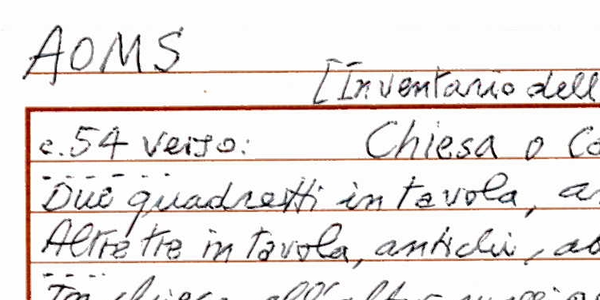 AOMS
[Inventario dell
c.54 verso: Chiesa o Co
Due quadretti in tavola, an
Altre tre in tavola, antichi, ad
In chiesa all'altar maggior